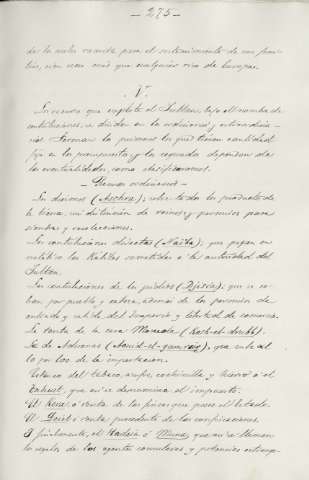 — 275 —
de la nube venida para el sostenimiento de sus fami-
lias, son cosa que cualquier otra de Europa.
V.
Los recursos que explota el Sultan, bajo el nombre de
contribuciones, se dividen en los ordinarios y extraordina-
rios. Forman la primera los que tienen cantidad
fija en los presupuestos y la segunda dependen de
las eventualidades, como clasificaremos.
— Ramos ordinarios —
Los diezmos (Aschra), sobre todos los productos de
la tierra, sin distincion de ramos y permisos para
siembras y recolecciones.
Las contribuciones directas (Naiba), que pagan en
metálico las Kabilas sometidas á la autoridad del
Sultan.
Las contribuciones de los judios (Djezia), que se co-
bran por pueblo y cabeza, además de los permisos de
entrada y salida del Imperio y libertad de comercio.
La renta de la casa Moneda
La de Aduanas, que sube al
10 por 100 de la importacion.
Estanco del tabaco, azufre, cochinilla y hierro ó el
que así se denomina el impuesto.
El ó renta de las fincas que posee el Estado.
El ó renta procedente de las confiscaciones.
Y finalmente, el Hadeia ó Muna, que así se llaman
los regalos de los agentes consulares, y potencias extranje-